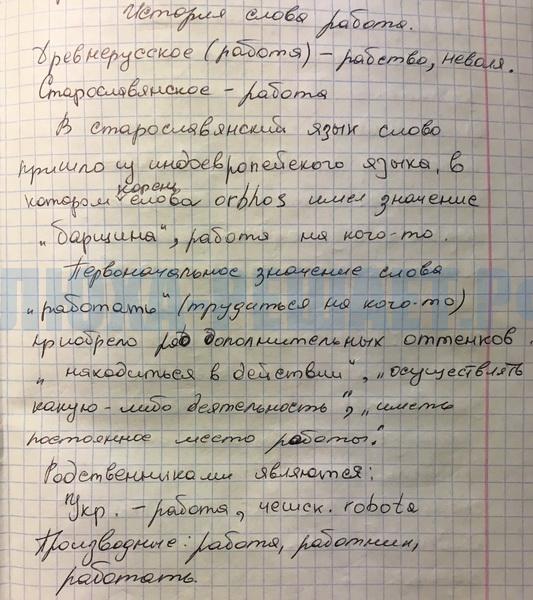 История слова работа.
Древнерусское (работа) – рабство, неволя.
Старославянское – работа
В старославянский язык слово
пришло из индоевропейского языка, в
котором корень слова orbhos имел значение
„барщина“, работа на кого-то.
Первоначальное значение слова
„работать“ (трудиться на кого-то)
приобрело ряд дополнительных оттенков.
„находиться в действии“, „осуществлять
какую-либо деятельность“, „иметь
постоянное место работы.“
Родственниками являются:
Укр. – работа, чешск. robota
Производные: работа, работник,
работать.